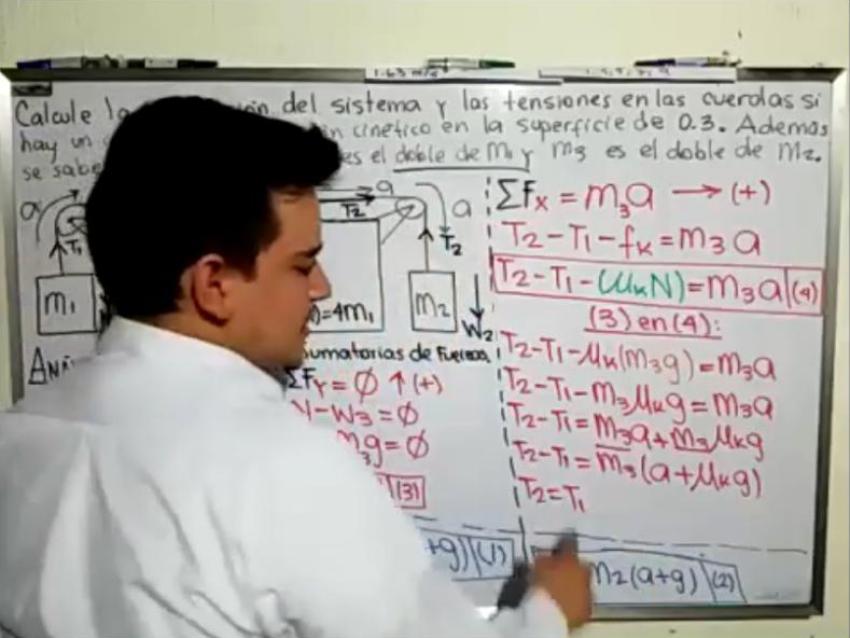 1.63 m/s²
Calcule la del sistema y las tensiones en las cuerdas si
hay un cinético en la superficie de 0.3. Además
se sabe es el doble de m₁ y m₃ es el doble de m₂.
a
T₁
m₁
a
T₂
a
T₂
=4m₁
m₂
W₂
Sumatorias de Fuerzas
ΣFy = Ø ↑(+)
N-W₃=Ø
m₃g=Ø
(3)
+g) (1)
ΣFx = m₃a → (+)
T₂-T₁-fk=m₃a
T₂-T₁-(μkN)=m₃a (4)
(3) en (4):
T₂-T₁-μk(m₃g)=m₃a
T₂-T₁-m₃μkg=m₃a
T₂-T₁=m₃a+m₃μkg
T₂-T₁=m₃(a+μkg)
T₂=T₁
m₂(a+g) (2)